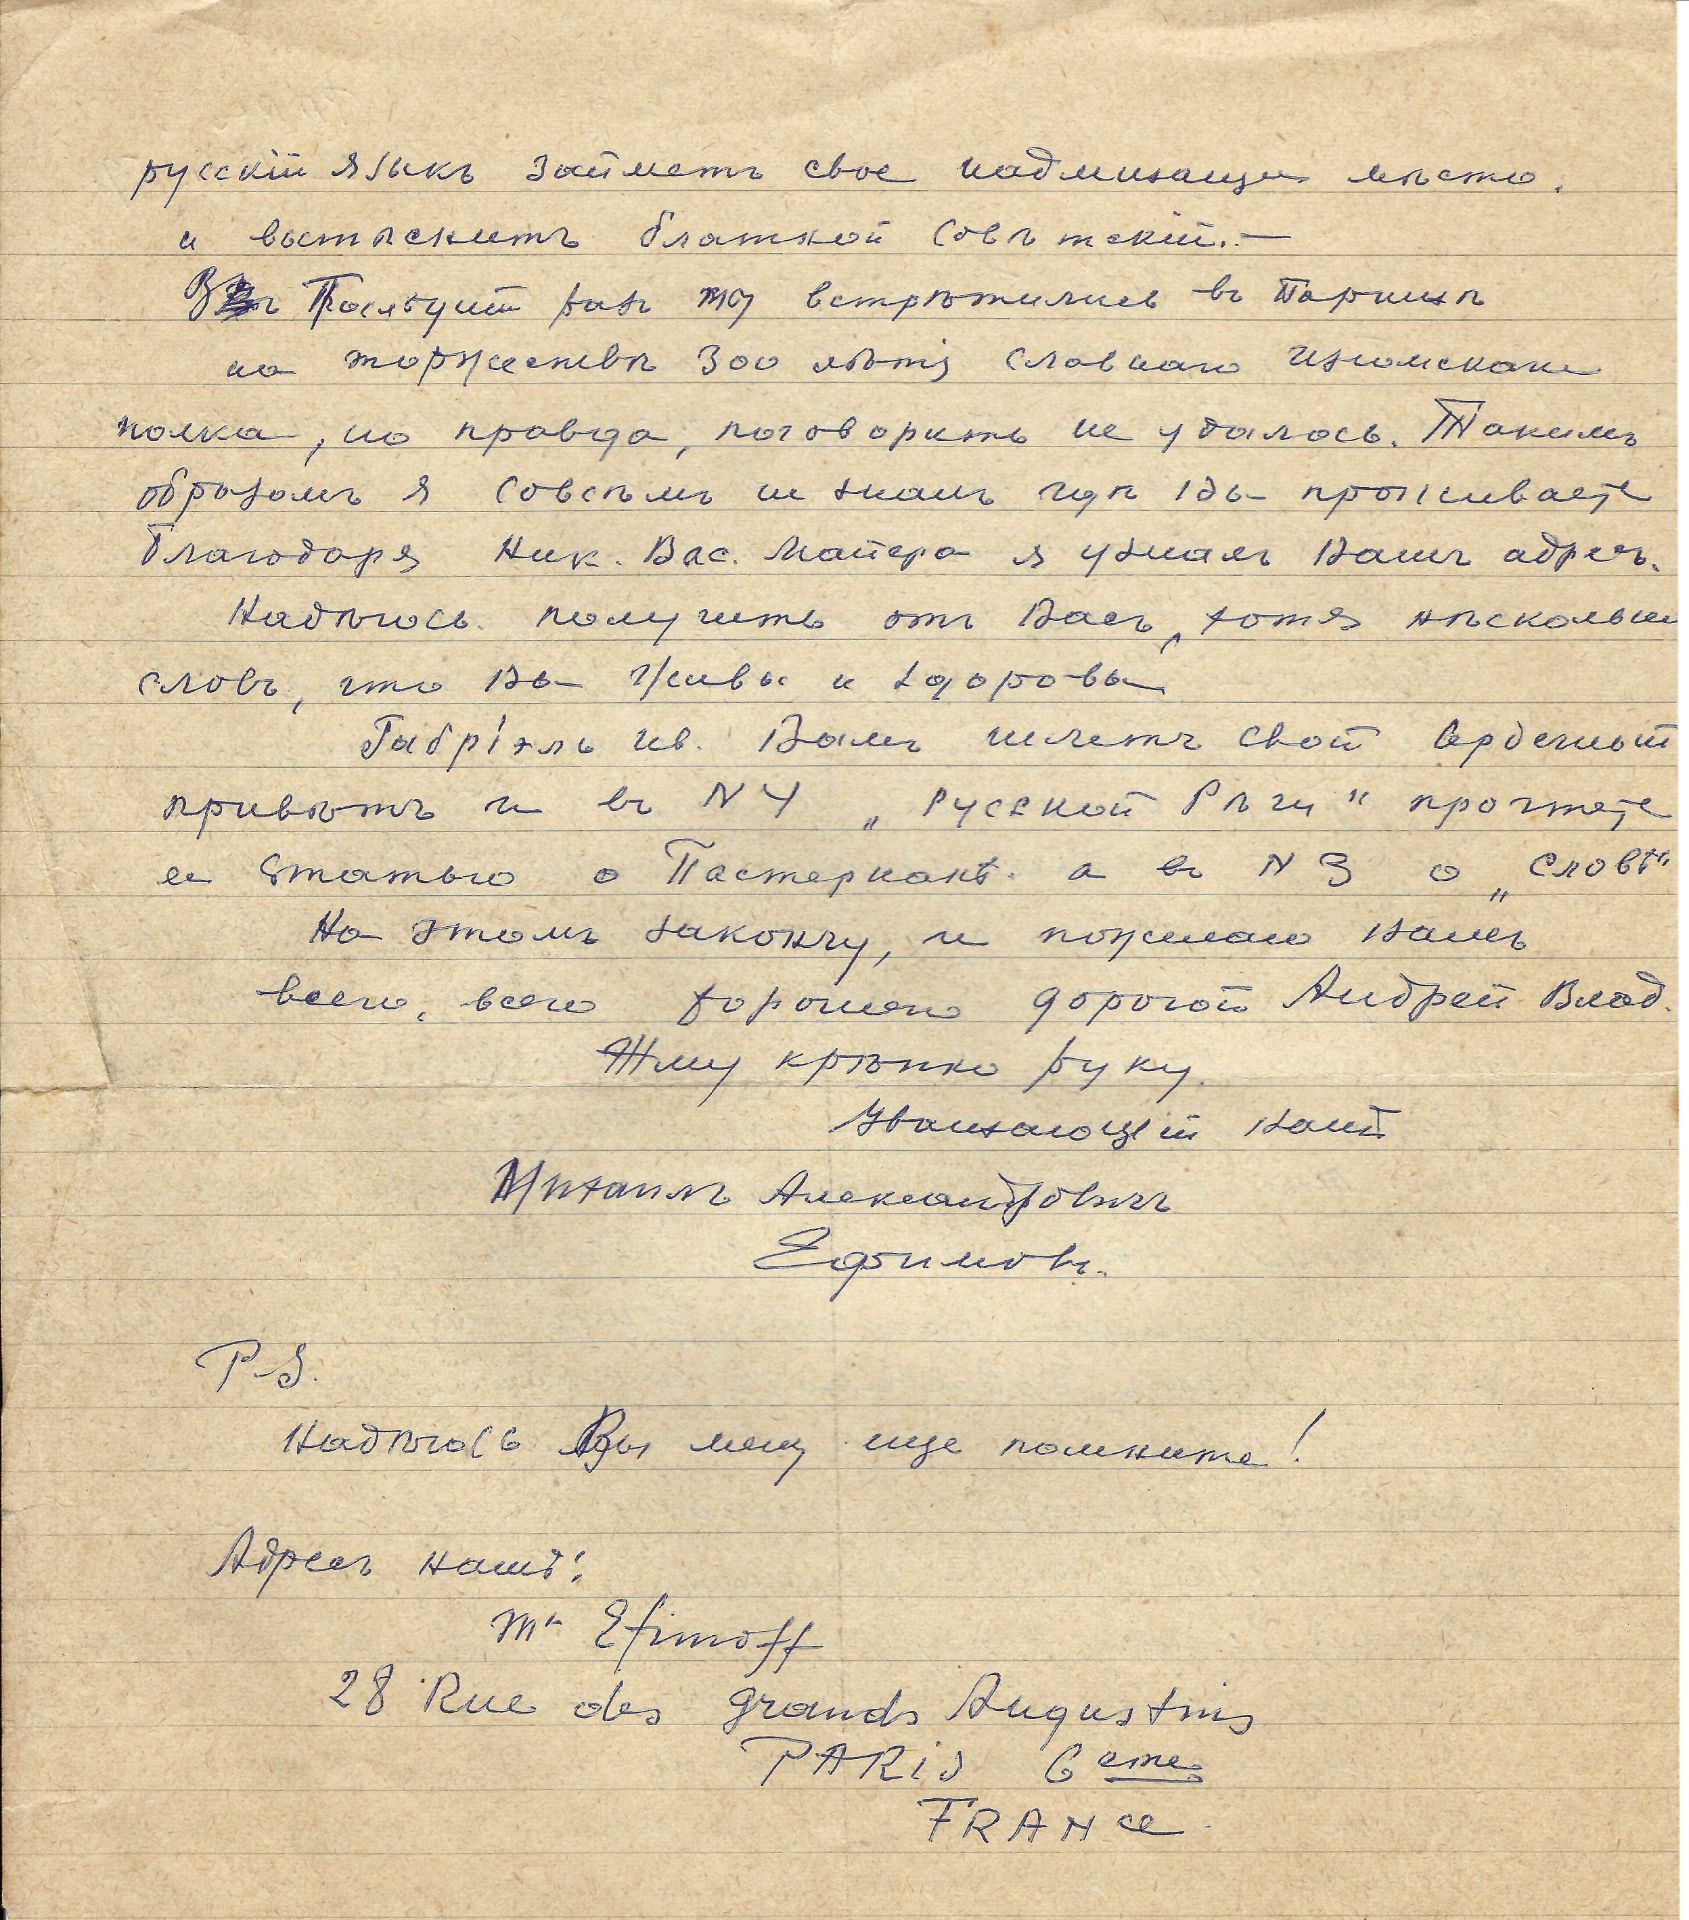 русскій языкъ займетъ свое надлежащее мѣсто.
и вытѣснитъ блатной совѣтскій. —
Въ Послѣдній разъ мы встрѣтились въ Парижѣ
на торжествѣ 300 лѣтія славнаго Изюмскаго
полка, но правда, поговорить не удалось. Такимъ
образомъ я совсѣмъ не зналъ гдѣ Вы проживаете
Благодаря Ник. Вас. Майера я узналъ Вашъ адресъ.
Надѣюсь получить отъ Васъ, хотя нѣсколько
словъ, что Вы живы и здоровы
Габріэль Ив. Вамъ шлетъ свой сердечный
привѣтъ и въ N 4 „Русской Рѣчи" прочтете
ея статью о Пастернакѣ. а въ N 3 о „Словѣ"
На этомъ закончу, и пожелаю Вамъ
всего, всего хорошего дорогой Андрей Влад.
Жму крѣпко руку.
Уважающій Васъ
Михаилъ Александровичъ
Ефимовъ.
P.S.
Надѣюсь Вы меня еще помните!
Адресъ нашъ:
Mr Efimoff
28 Rue des grands Augustins
PARIS 6 eme
FRANCE